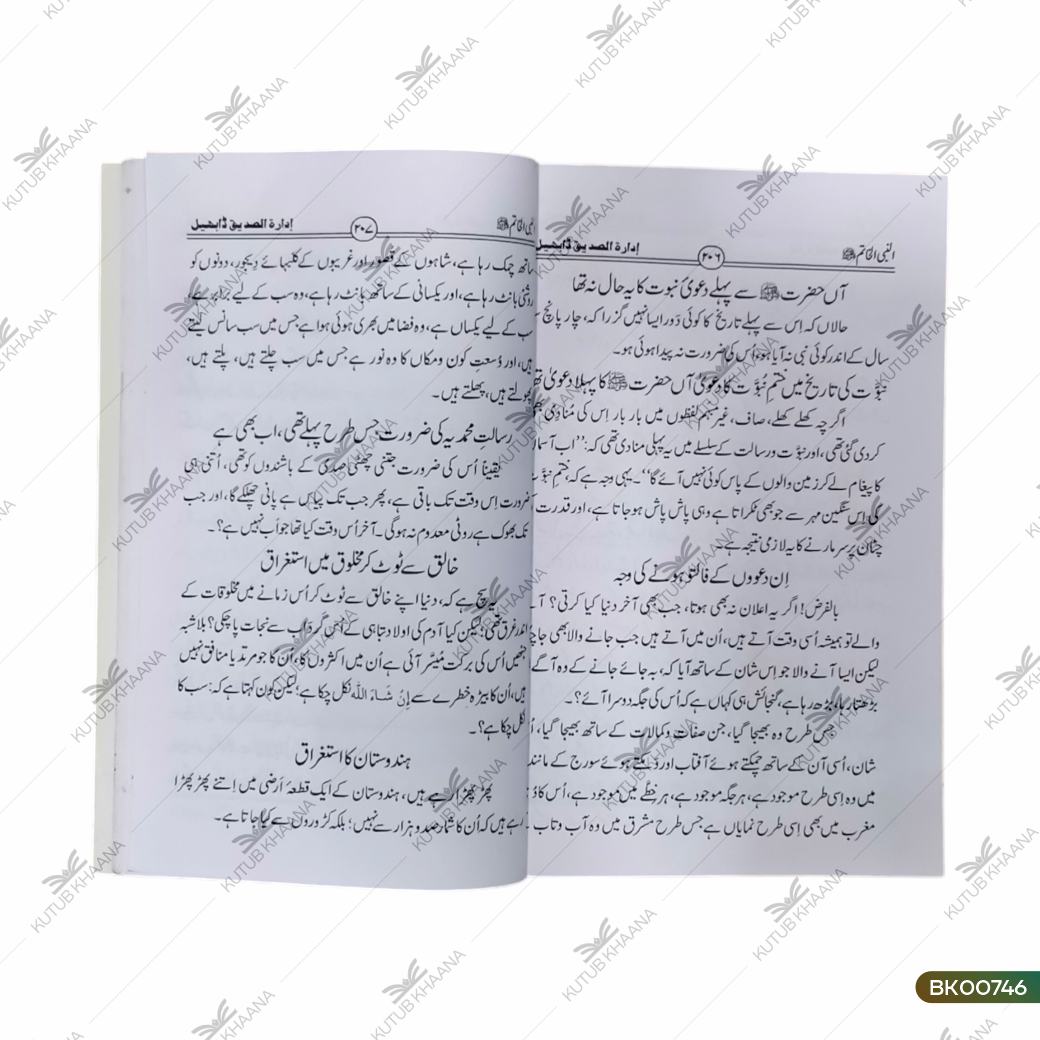 النبی الخاتم ﷺ
۲۰۶
ادارۃ الصدیق ڈابھیل
آں حضرت ﷺ سے پہلے دعویٔ نبوت کا یہ حال نہ تھا
حالاں کہ اِس سے پہلے تاریخ کا کوئی دَور ایسا نہیں گزرا کہ، چار پانچ
سال کے اندر کوئی نبی نہ آیا ہو، اُس کی ضرورت نہ پیدا ہوئی ہو۔
نبوَّت کی تاریخ میں ختمِ نُبوَّت کا دعویٰ آں حضرت ﷺ کا پہلا دعویٰ
اگرچہ کھلے کھلے، صاف، غیر مبہم لفظوں میں بار بار اِس کی مُنادی بھی
کردی گئی تھی، اور نبوَّت ورسالت کے سلسلے میں یہ پہلی منادی تھی کہ: ’’اب آسمان
کا پیغام لے کر زمین والوں کے پاس کوئی نہیں آئے گا‘‘۔ یہی وجہ ہے کہ، ختمِ نبوَّت
کی اِس سنگین مہر سے جو بھی ٹکراتا ہے وہی پاش پاش ہوجاتا ہے، اور قدرت
چٹان پر سر مارنے کا یہ لازمی نتیجہ ہے۔
اِن دعووں کے فالتو ہونے کی وجہ
بالفرض! اگر یہ اعلان نہ بھی ہوتا، جب بھی آخر دنیا کیا کرتی؟
والے تو ہمیشہ اُسی وقت آتے ہیں، اُن میں آتے ہیں جب جانے والا بھی
لیکن ایسا آنے والا جو اِس شان کے ساتھ آیا کہ، بہ جائے جانے کے وہ آگے
بڑھتا رہا، بڑھ رہا ہے، گنجائش ہی کہاں ہے کہ اُس کی جگہ دوسرا آئے؟۔
جس طرح وہ بھیجا گیا، جن صفات وکمالات کے ساتھ بھیجا گیا،
شان، اُسی آن کے ساتھ چمکتے ہوئے آفتاب اور دَمکتے ہوئے سورج کے مانند
میں وہ اِسی طرح موجود ہے، ہر جگہ موجود ہے، ہر خطے میں موجود ہے، اُس کا
مغرب میں بھی اِسی طرح نمایاں ہے جس طرح مشرق میں وہ آب وتاب
النبی الخاتم ﷺ
۲۰۷
ادارۃ الصدیق ڈابھیل
ساتھ چمک رہا ہے، شاہوں کے قصور اور غریبوں کے کلبہائے دیجور، دونوں کو
روشنی بانٹ رہا ہے، اور یکسانی کے ساتھ بانٹ رہا ہے، وہ سب کے لیے برابر ہے،
سب کے لیے یکساں ہے، وہ فضا میں بھری ہوئی ہوا ہے جس میں سب سانس لیتے
ہیں، اور وُسعتِ کون ومکاں کا وہ نور ہے جس میں سب چلتے ہیں، پلتے ہیں،
پھولتے ہیں، پھلتے ہیں۔
رسالتِ محمدیہ کی ضرورت جس طرح پہلے تھی، اب بھی ہے
یقینًا اُس کی ضرورت جتنی چھٹی صدی کے باشندوں کو تھی، اُتنی ہی
ضرورت اِس وقت تک باقی ہے، پھر جب تک پیاس ہے پانی چھلکے گا، اور جب
تک بھوک ہے روٹی معدوم نہ ہوگی۔ آخر اُس وقت کیا تھا جو اَب نہیں ہے؟۔
خالق سے ٹوٹ کر مخلوق میں استغراق
یہ سچ ہے کہ، دنیا اپنے خالق سے ٹوٹ کر اُس زمانے میں مخلوقات کے
اندر غرق تھی؛ لیکن کیا آدم کی اولاد تباہی کے اُس گرداب سے نجات پا چکی؟ بلاشبہ
جنھیں اُس کی برکت مُیسَّر آئی ہے اُن میں اکثروں کا، اُن کا جو مرتد یا منافق نہیں
ہیں، اُن کا بیڑہ خطرے سے إنْ شَاءَ اللّٰہ نکل چکا ہے؛ لیکن کون کہتا ہے کہ: سب کا
نکل چکا ہے؟۔
ہندوستان کا استغراق
پھڑ پھڑا رہے ہیں، ہندوستان کے ایک قطعۂ اَرضی میں اِتنے پھڑ پھڑا
رہے ہیں کہ اُن کا شمار صد وہزار سے نہیں؛ بلکہ کڑوروں سے کیا جاتا ہے۔
KUTUB KHAANA
BK00746